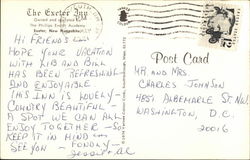 The Exeter Inn
Owned and operated by
The Phillips Exeter Academy
Exeter, New Hampshire
HI FRIENDS —
HOPE YOUR VACATION
WITH LIB AND BILL
HAS BEEN REFRESHING
AND ENJOYABLE
THIS INN IS LOVELY—
COUNTRY BEAUTIFUL —
A SPOT WE CAN ALL
ENJOY TOGETHER — SO
KEEP IT IN MIND —
SEE YOU — FONDLY
Post Card
MR AND MRS.
CHARLES JOHNSON
4851 ALBEMARLE ST. N.W.
WASHINGTON, D.C.
20016